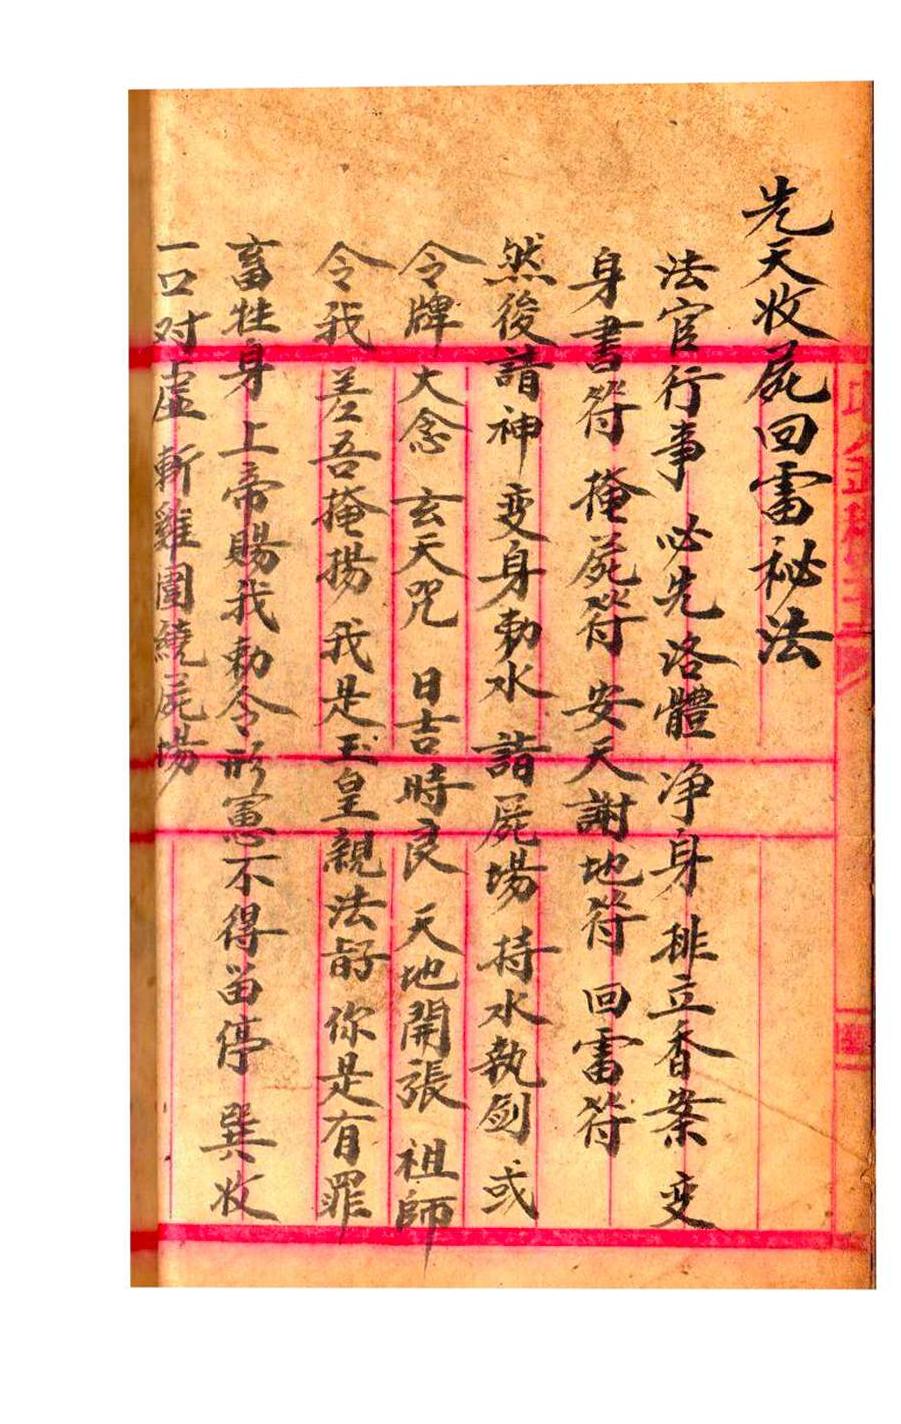 先天收屍回雷祕法
法官行事 必先洛體 净身 排立香案 变
身書符 掩屍符 安天謝地符 回雷符
然後請神 变身勅水 詣屍場 持水執劍 或
令牌 大念 玄天咒 日吉時良 天地開張 祖師
令我 差吾掩揚 我是玉皇親法 你是有罪
畜牲身 上帝賜我勅令 憲不得留停 巽收
一口对虚 斬雞圍繞屍場